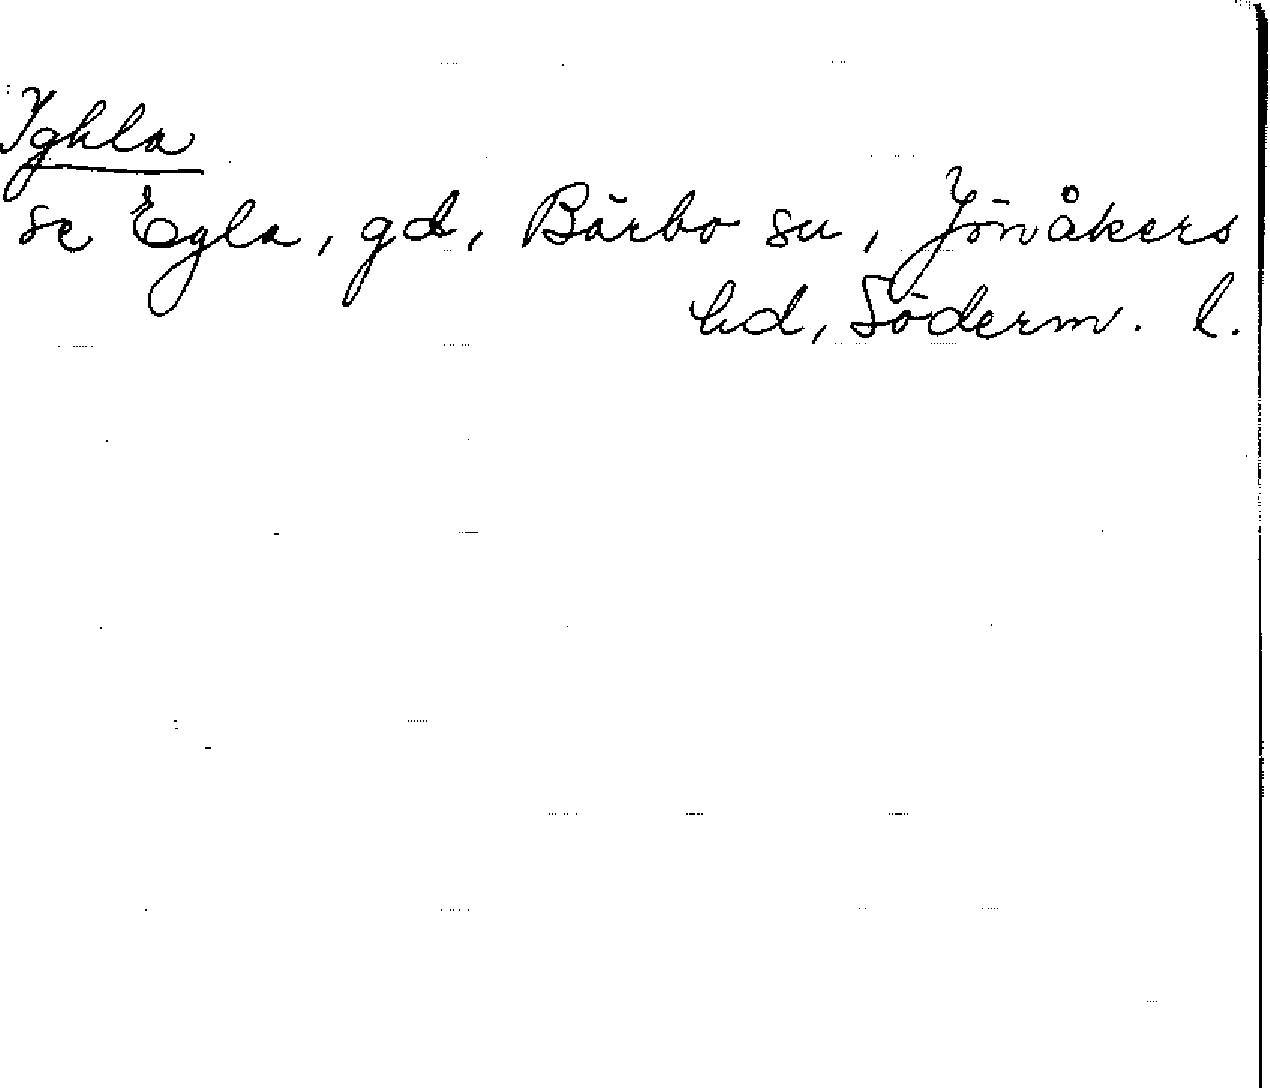 Ighla
se Egla, gd, Bärbo sn, Jönåkers
hd, Söderm. l.